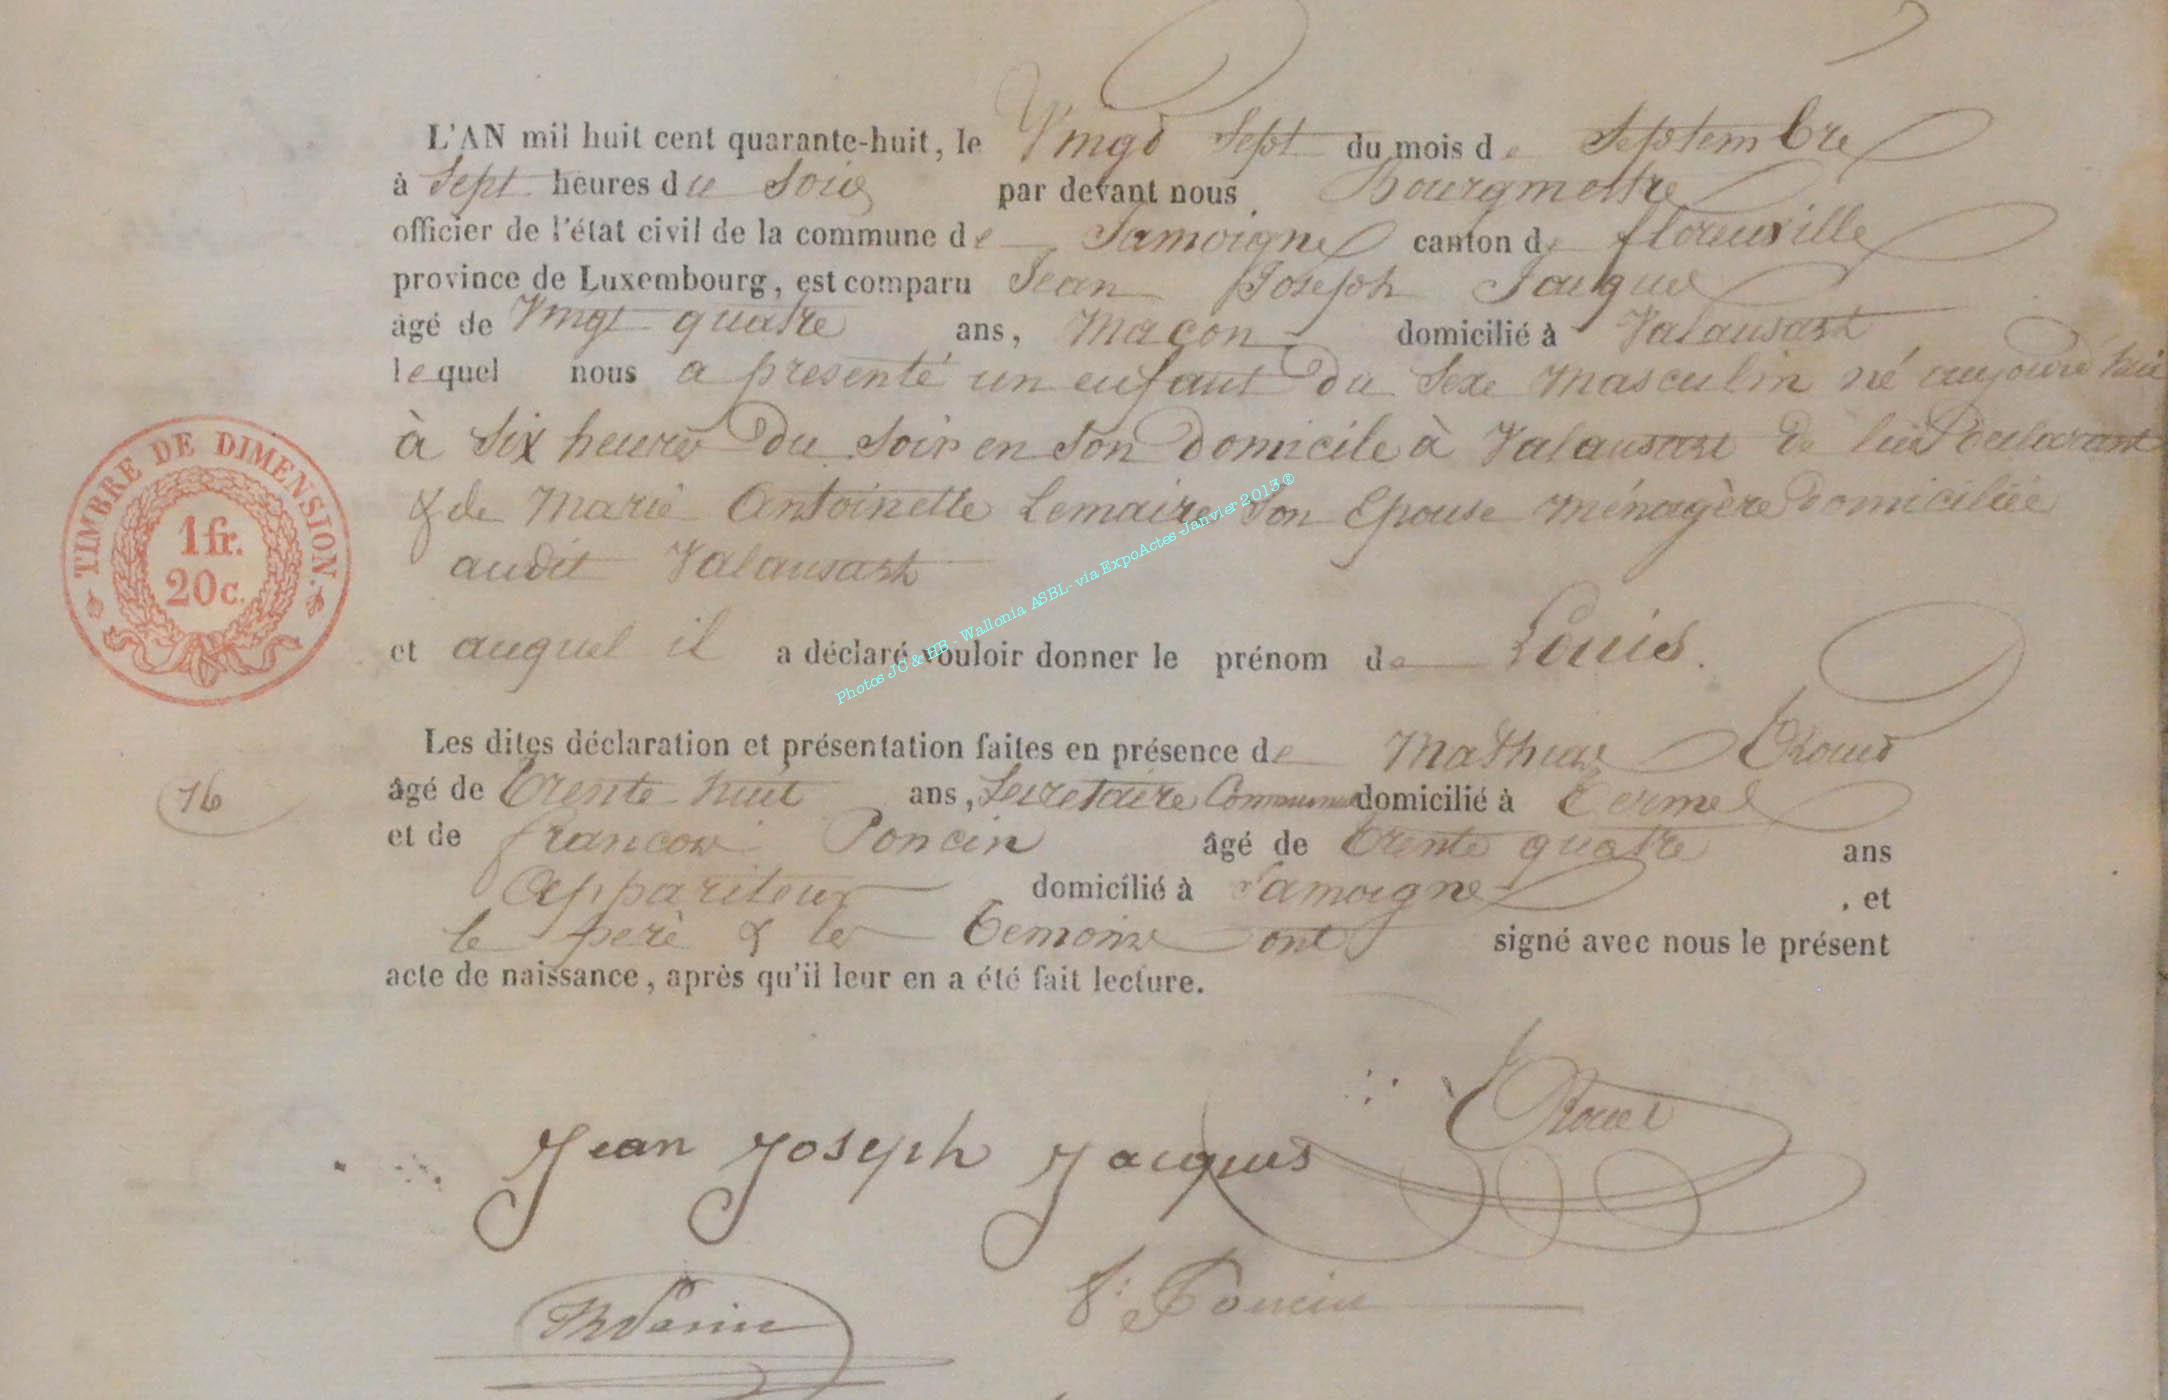 L'AN mil huit cent quarante-huit, le Vingt Sept du mois de Septembre
à Sept heures du Soir par devant nous Bourgmestre
officier de l'état civil de la commune de Jamoigne canton de florenville
province de Luxembourg, est comparu Jean Joseph Jacques
âgé de Vingt quatre ans, Maçon domicilié à Valansart
lequel nous a presenté un enfant du Sexe Masculin né aujourd'hui
à Six heures du Soir en Son domicile à Valansart de lui declarant
& de Marie Antoinette Lemaire Son Epouse Ménagère domiciliée
audit Valansart
et auquel il a déclaré vouloir donner le prénom de Louis.
Les dites déclaration et présentation faites en présence de Mathias
âgé de trente huit ans, Secretaire Communal domicilié à termes
et de francois Poncin âgé de trente quatre ans
Appariteur domicilié à Jamoigne, et
le père & les temoins ont signé avec nous le présent
acte de naissance, après qu'il leur en a été fait lecture.
TIMBRE DE DIMENSION.
1 fr.
20 c.
76
Jean Joseph Jacques
f. Poncin
Photos JC & HB - Wallonia ASBL - via ExpoActes - Janvier 2013 ®